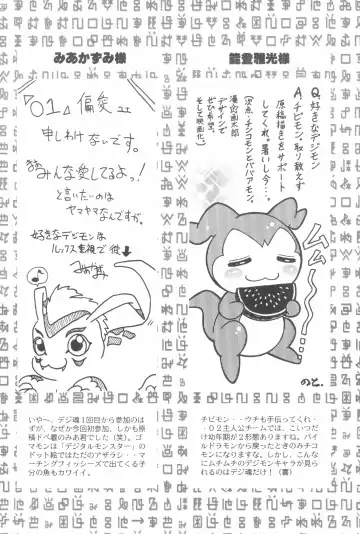 能登雅光様
Q.好きなデジモン
A.チビモン。取り敢えず
原稿描きをサポート
してくれ。暑いし今…。
(次点・チョコモンとババアモン。
漫☆画太郎
デザインで
ぜひ希望。
そして映画化)
ムニムニ…
のと。
チビモン・・ウチも手伝ってくれ・
・02主人公チームでは、こいつだ
け幼年期が2形態ありますね。パイ
ルドラモンから戻ったときのみチコ
モンになりますな。しかし、こんな
にムチムチのデジモンキャラが見ら
れるのはデジ魂だけ!(響)
みあかずみ様
『01』偏愛で
申しわけないです。
みんな愛してるよっ!
と言いたいのは
ヤマヤマなんですが。
好きなデジモンは
ルックス重視で彼↓
みあかずみ
いや〜、デジ魂1回目から参加のは
ずが、なぜか今回初参加、しかも原
稿ドベ着のみあ君でした(笑)。ゴ
マモンは「デジタルモンスター」の
ドット絵ではただのアザラシ・・マ
ーチングフィッシーズで出てくる子
分の魚もカワイイ。